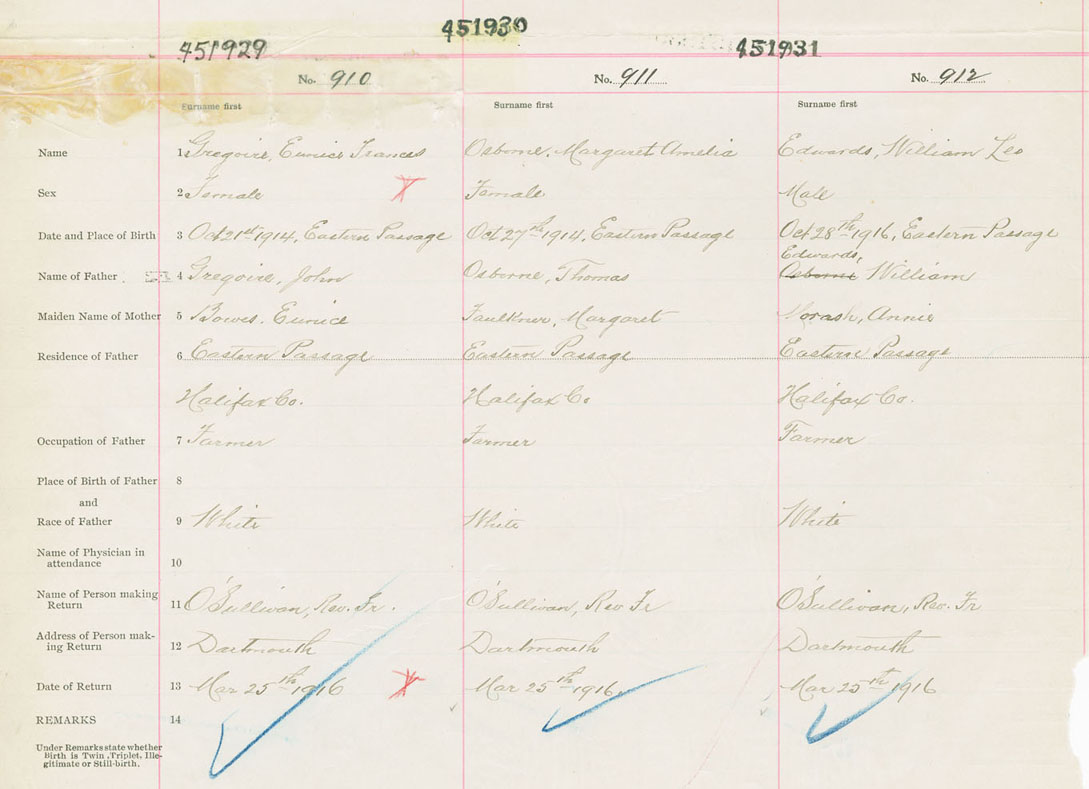 451929 451930 451931
No. 910 No. 911 No. 912
Surname first Surname first Surname first
Name 1 Gregoire, Eunice Frances Osborne, Margaret Amelia Edwards, William Leo
Sex 2 Female Female Male
Date and Place of Birth 3 Oct 21st 1914, Eastern Passage Oct 27th 1914, Eastern Passage Oct 28th 1916, Eastern Passage
Edwards,
Name of Father 4 Gregoire, John Osborne, Thomas Osborne William
Maiden Name of Mother 5 Bowes, Eunice Faulkner, Margaret Morash, Annie
Residence of Father 6 Eastern Passage Eastern Passage Eastern Passage
Halifax Co. Halifax Co Halifax Co.
Occupation of Father 7 Farmer Farmer Farmer
Place of Birth of Father 8
and
Race of Father 9 White White White
Name of Physician in
attendance 10
Name of Person making
Return 11 O'Sullivan, Rev. Fr. O'Sullivan, Rev Fr O'Sullivan, Rev. Fr
Address of Person mak-
ing Return 12 Dartmouth Dartmouth Dartmouth
Date of Return 13 Mar 25th 1916 Mar 25th 1916. Mar 25th 1916
REMARKS 14
Under Remarks state whether
Birth is Twin, Triplet, Ille-
gitimate or Still-birth.